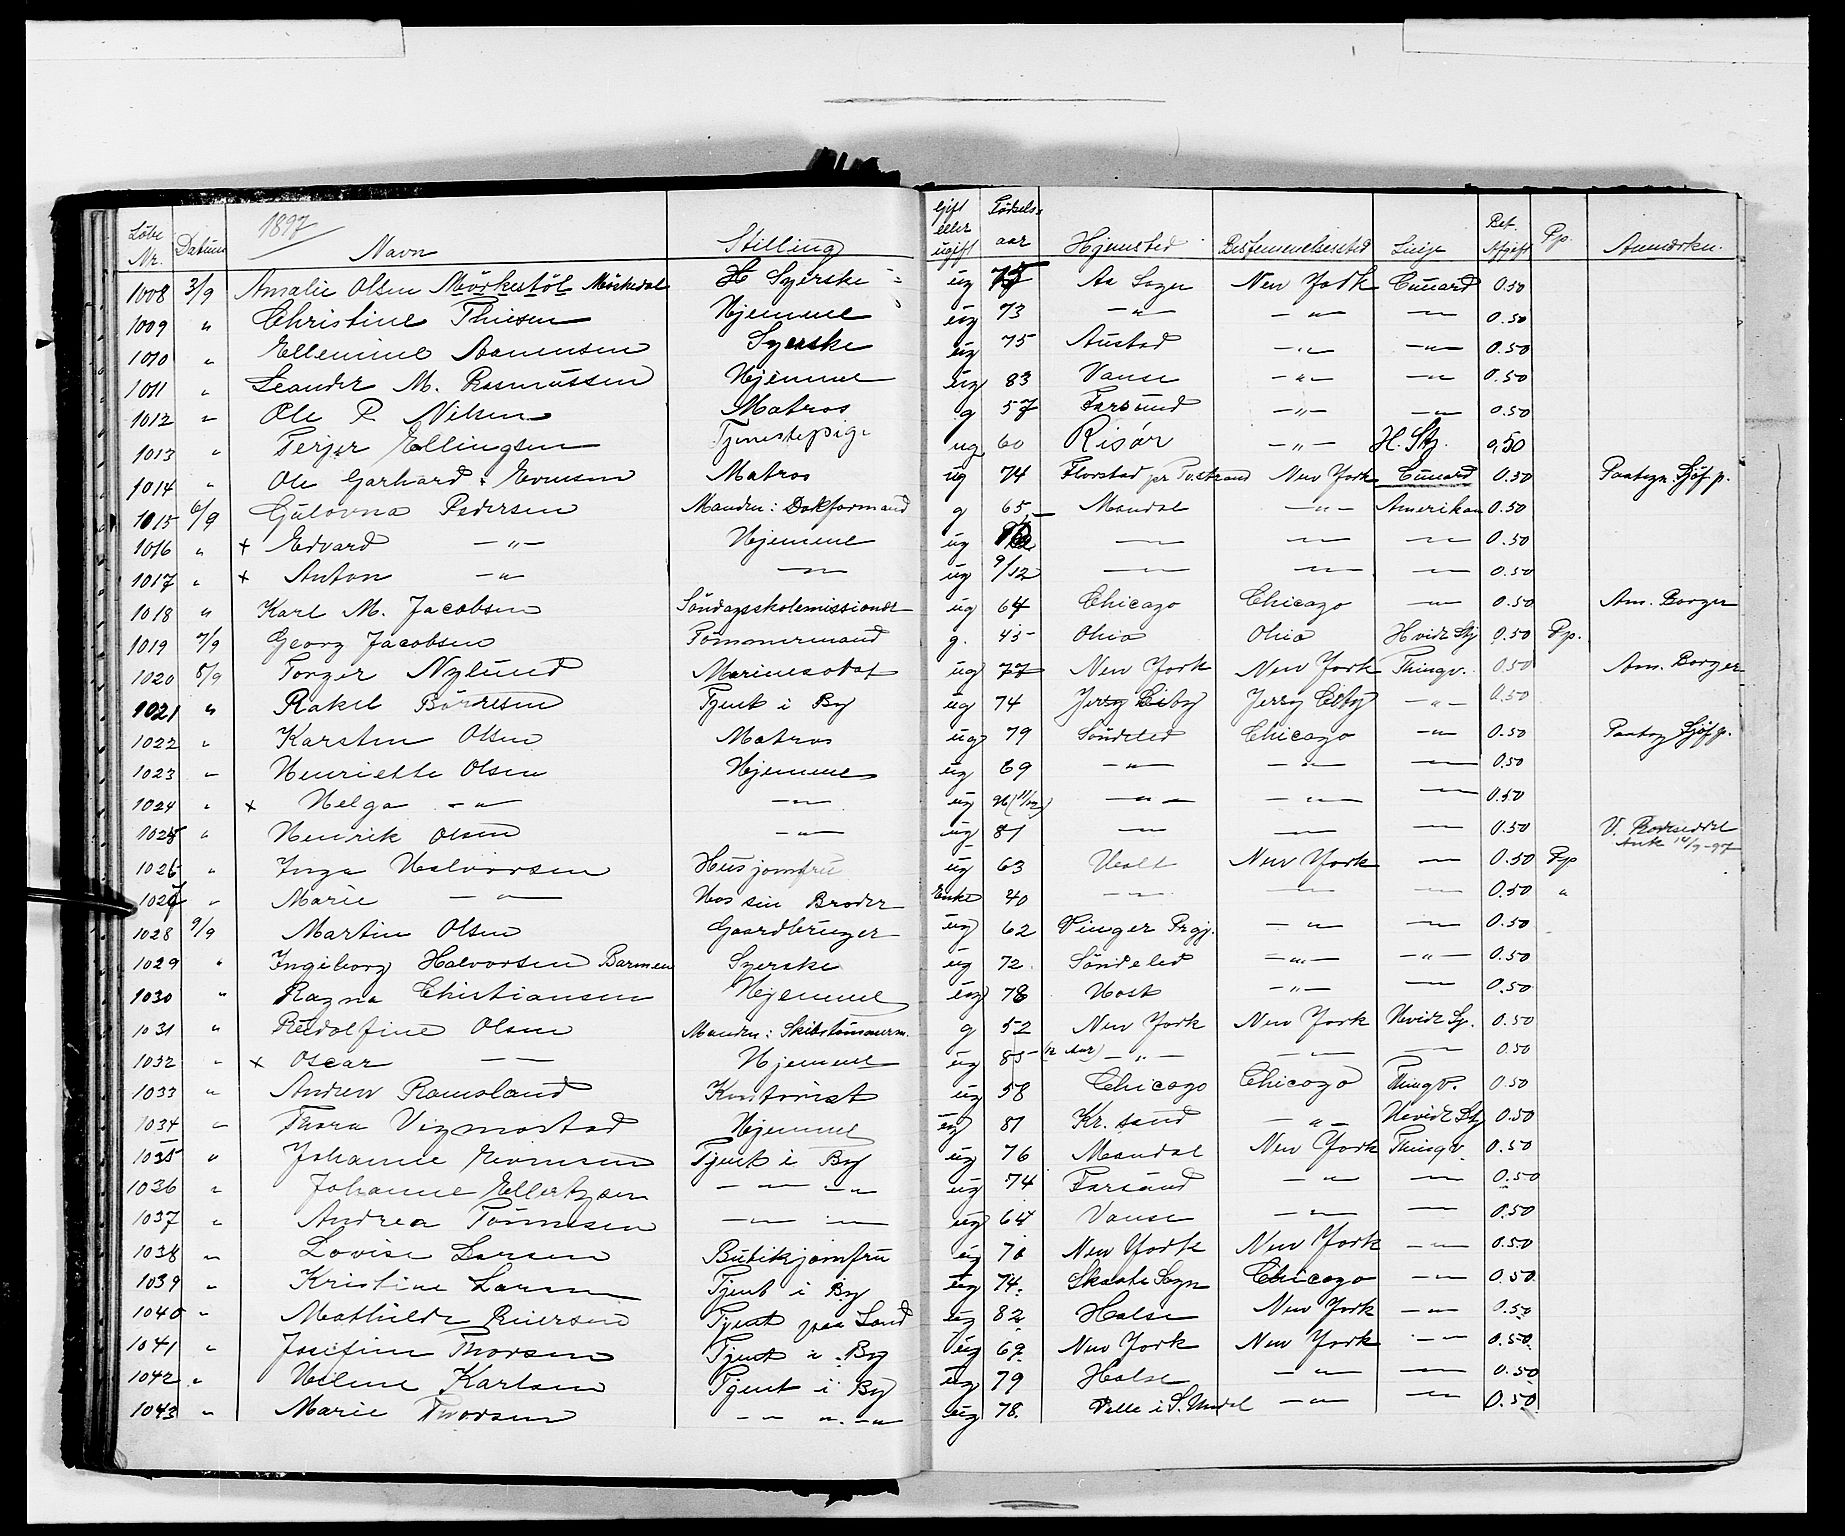 1897
Löbe Nr. Datum Navn Stilling Gift eller ugift Födsels-aar Hjemsted Bestemmelsessted Linje Bet. Afgift Pp. Anmærkn.
1008 3/9 Amalie Olsen Mörkestöl Mörkedal H Syerske ug 75 Aa Sogn New York Cunard 0.50
1009 " Christine Thiesen Hjemme ug 73 — " — — " — — 0.50
1010 " Ellemine Aanensen Syerske ug 75 Austad — " — — " — 0.50
1011 " Leander M. Rasmussen Hjemme ug 83 Vanse — " — — " — 0.50
1012 " Ole P. Nilsen Matros g 57 Farsund — " — — " — 0.50
1013 " Terjer Ellingsen Tjenestepige ug 60 Risör — " — H. Stj. 0,50
1014 " Ole Garhard Evensen Matros ug 74 Flovstad pr Tvestrand New York Cunard 0.50
1015 6/9 Gulovna Pedersen Manden: Dokformand g 65 Mandal — " — Amerikan 0.50
1016 " x Edvard — " — Hjemme ug — — — 0.50
1017 " x Anton — " — — " — ug 9/12 — — — 0.50
1018 " Karl M. Jacobsen Söndagsskolemissionær ug 64 Chicago Chicago — 0.50 Am. Borger
1019 7/9 Georg Jacobsen Tömmermand g. 45 Ohio Ohio Hvide Stj 0.50 Pp.
1020 8/9 Torger Nylund Marinesoldat ug 77 New York New York Thingv. 0.50 Am. Borger
1021 " Rakel Börresen Tjent i By ug 74 Jersy City Jersy City — " — 0.50
1022 " Karsten Olsen Matros ug 79 Söndeled Chicago — " — 0.50
1023 " Henriette Olsen Hjemme ug 69 — " — — " — — 0.50
1024 " x Helga — " — — " — ug 96 (11/12) — " — — " — — 0.50
1025 " Henrik Olsen — " — ug 81 — — — 0.50
1026 " Inga Halvorsen Husjomfru ug 63 Holt New York — 0.50 Pp
1027 " Marie — " — Hos sin Broder Enke 40 — " — — — 0.50 "
1028 9/9 Martin Olsen Gaardbruger ug 62 Vinger Prgj. — " — — 0.50
1029 " Ingeborg Halvorsen Barmen Syerske ug 72 Söndeled — " — — " — 0.50
1030 " Ragna Christiansen Hjemme ug 78 — " — — 0.50
1031 " Rudolfine Olsen Manden: Skibstömmerm. g 52 New York New York Hvide Sj. 0.50
1032 " x Oscar — — Hjemme ug 85 (12 Aar) — " — — " — — 0.50
1033 " Andrew Ramsland Kontorist ug 58 Chicago Chicago Thingv. 0.50
1034 " Thora Vigmostad Hjemme ug 81 Kr. sand — " — Hvide Stj 0.50
1035 " Johanne Evensen Tjent i By ug 76 Mandal New York Thingv. 0.50
1036 " Johanne Ellertsen — " — " — ug 74 Farsund — " — — 0.50
1037 " Andrea Tönnesen — " — " — ug 64 Vanse — " — — 0.50
1038 " Lovise Larsen Butikjomfru ug 76 New York New York — " — 0.50
1039 " Kristine Larsen Tjent i By ug 74. Skaate Sogn Chicago — " — 0.50
1040 " Mathilde Reiersen Tjent paa Land ug 82 Halse New York — " — 0.50
1041 " Josefine Thorsen Tjent i By ug 69 New York New York — " — 0.50
1042 " Helene Karlsen Tjent i By ug 79 Halse — " — — 0.50
1043 " Marie Thorsen — " — " — ug 78. Valle i S. Undal — " — — " — 0.50